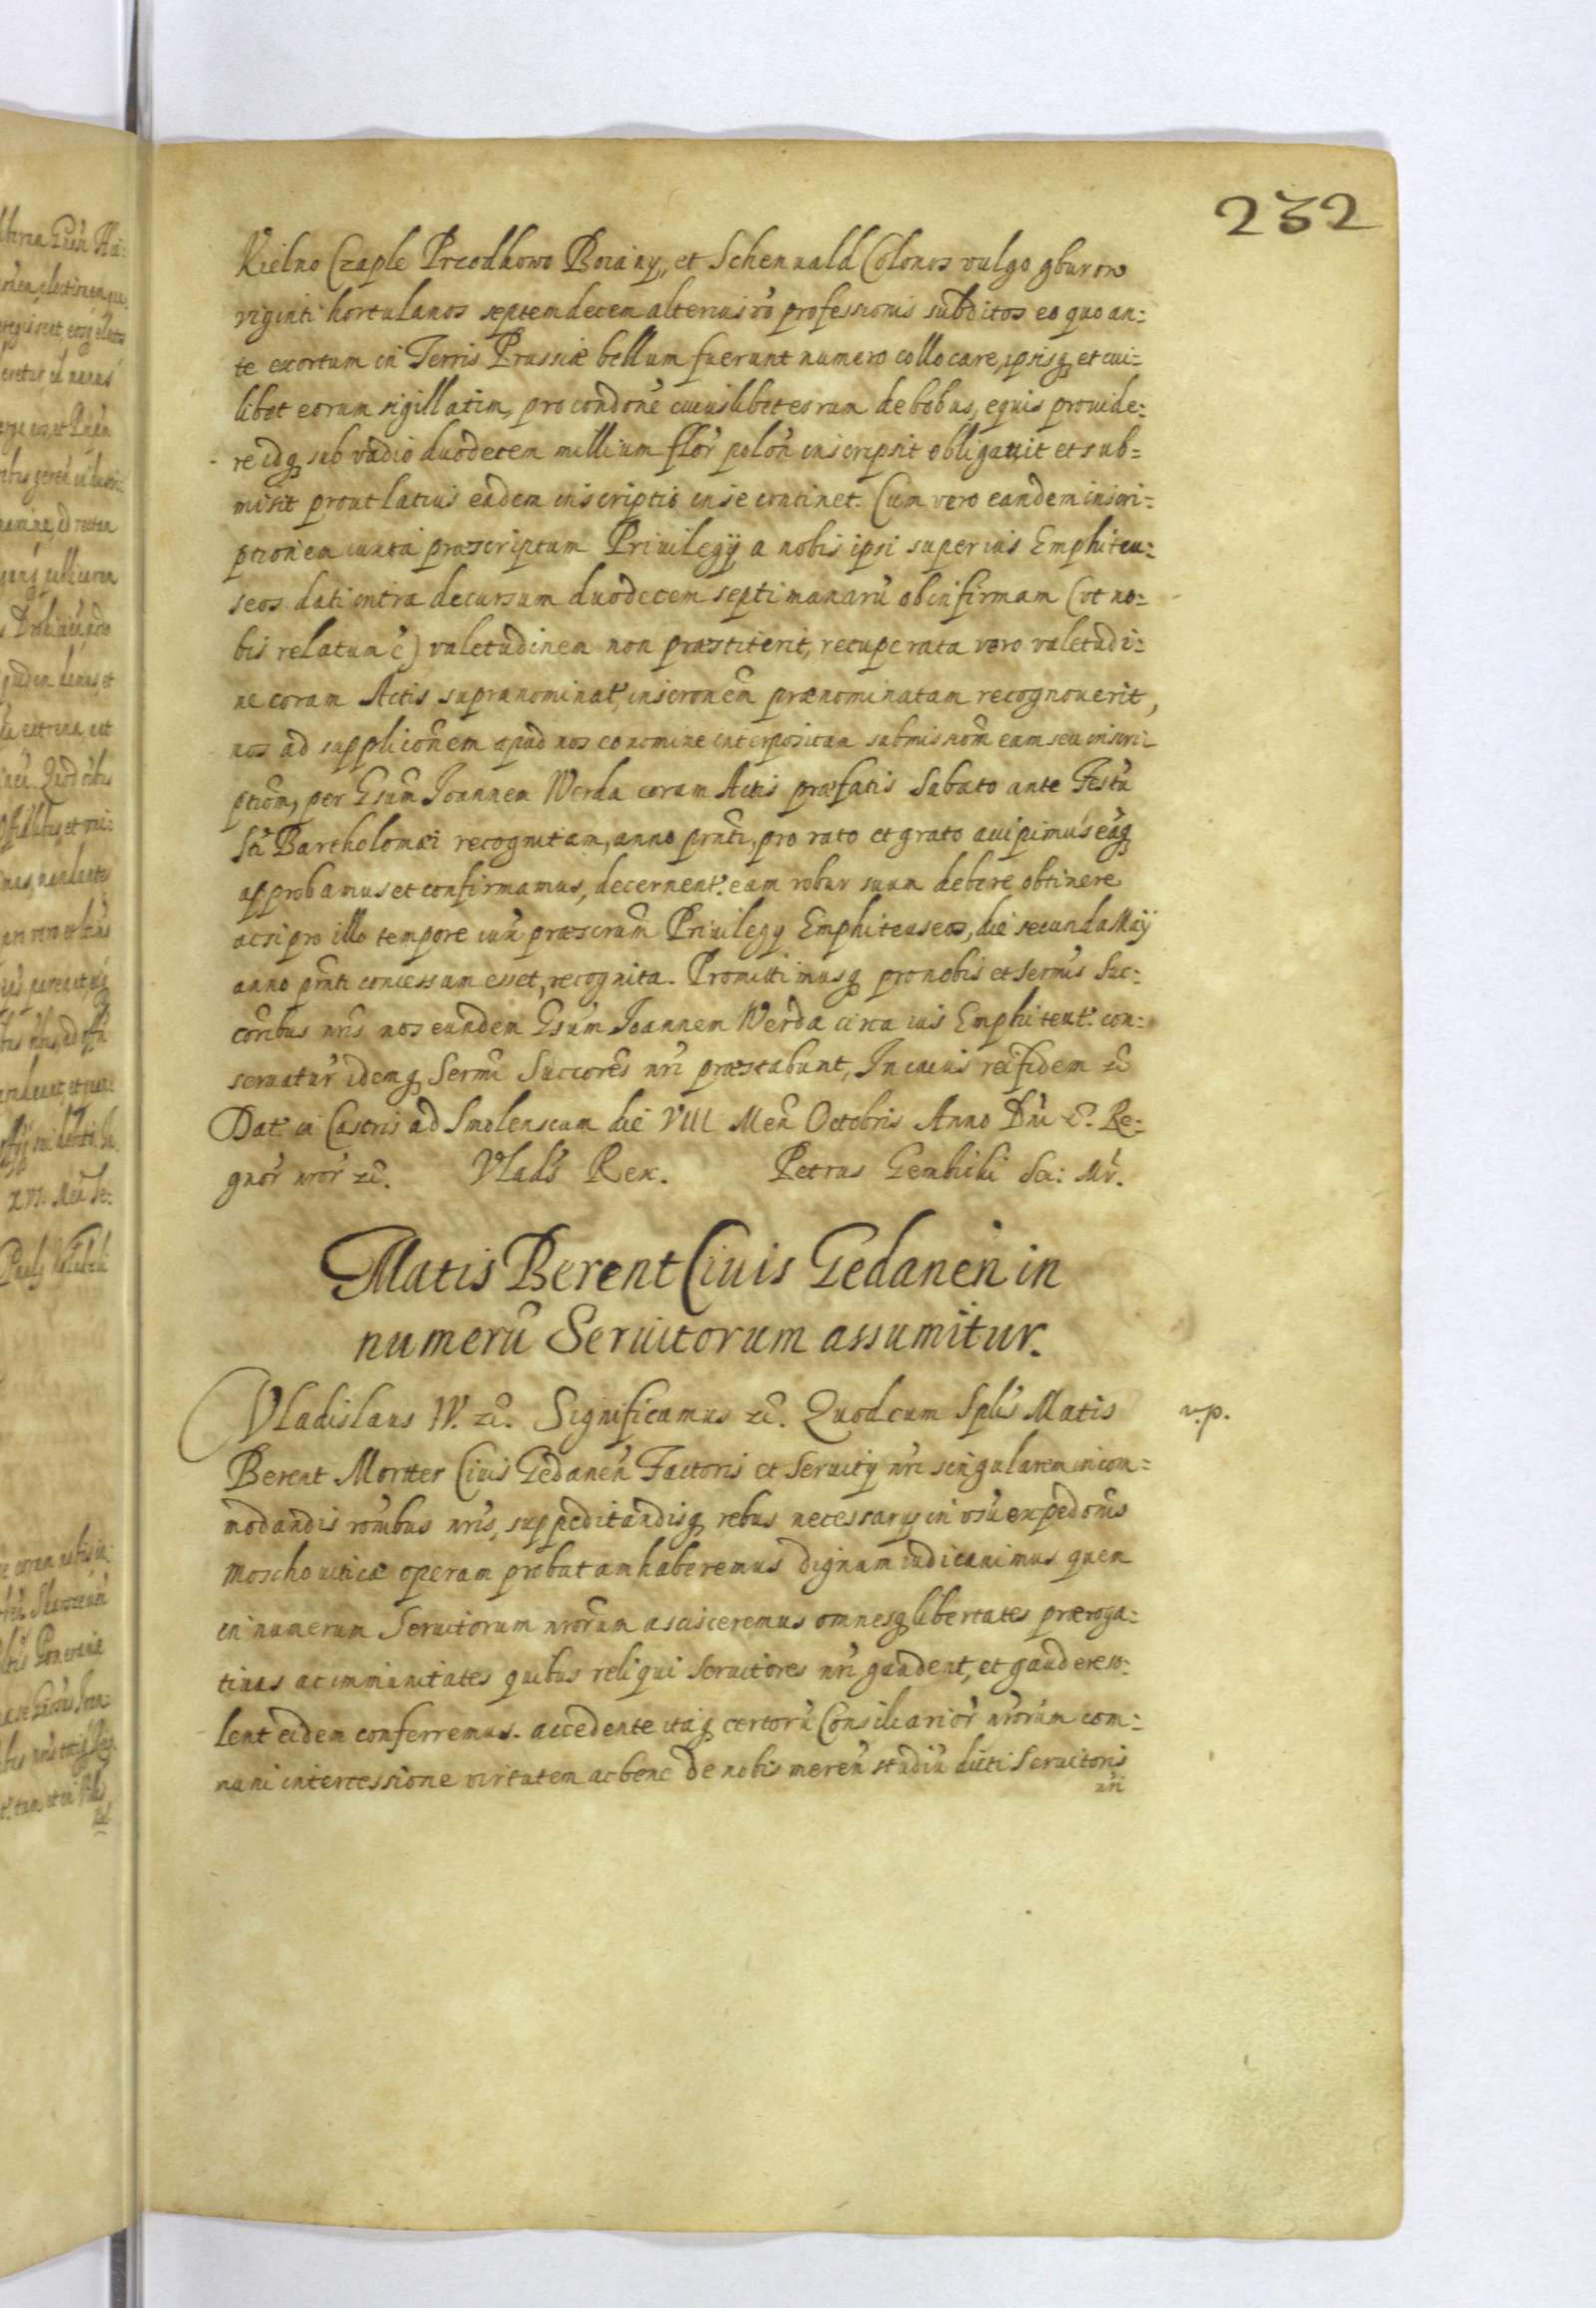 232
Kielno Czaple Przodkowo Boiany, et Schenuald Colonos vulgo gburow
viginti hortulanos septemdecem alterius vo professionis subditos eo quo an:
te exortum in Terris Prussiæ bellum fuerunt numero collocare, ipsisq et cui:
libet eorum sigillatim, pro condone cuiuslibet eorum de bobus, equis prouide:
re idq sub vadio duodecem millium flor polon inscripsit obligauit et sub=
misit prout latius eadem inscriptio in se continet. Cum vero eandem inscri:
ptionem iuxta præscriptum Priuilegÿ a nobis ipsi super ius Emphiteu:
seos dati intra decursum duodecem septimanarū ob infirmam (vt no:
bis relatum ē) valetudinem non præstiterit, recuperata vero valetudi:
ne coram Actis supranominat, inscronem prænominatam recognouerit,
nos ad supplicōnem apud nos eo nomine interpositam submissnom eam seu inscri:
ptiōm, per Gsum Ioannem Werda coram Actis præfatis Sabato ante Festū
Sti Bartholomæi recognitam, anno prnti, pro rato et grato accipimus eāq
approbamus et confirmamus, decernent. eam robur suum debere obtinere
acsi pro illo tempore iuxta præscrum Priuilegÿ Emphiteuseos, die secunda Maÿ
anno prnti concessam esset, recognita. Promittimusq pro nobis et Sermis Suc:
coribus nris nos eundem Gsum Ioannem Werda circa ius Emphiteut. con:
seruatur idemq Sermi Succores nri præstabunt, In cuius rei fidem zc
Dat. in Castris ad Smolenscum die VIII Men Octobris Anno Dni zc. Re:
gnor nror zc. Vlads Rex. Petrus Gembicki Sec: Mr.
Matis Berent Ciuis Gedanen in
numerū Seruitorum assumitur.
Vladislaus IV. zc. Significamus zc. Quod cum Splis Matis
v.p.
Berent Mortter Ciuis Gedanen Factoris et Seruitÿ nri singularem in com=
modandis romibus nris, suppeditandisq rebus necessarÿs in usū expedonis
Moschouiticæ operam probatam haberemus dignum iudicauimus quem
in numerum Seruitorum nrorum ascisceremus omnesq libertates præroga:
tiuas ac immunitates quibus reliqui Seruitores nri gaudent, et gaudere so:
lent eidem conferremus. accedente itaq certorū Consiliarior nrorum com:
muni intercessione virtutem ac bene de nobis meren studiū dicti Seruitoris
nri